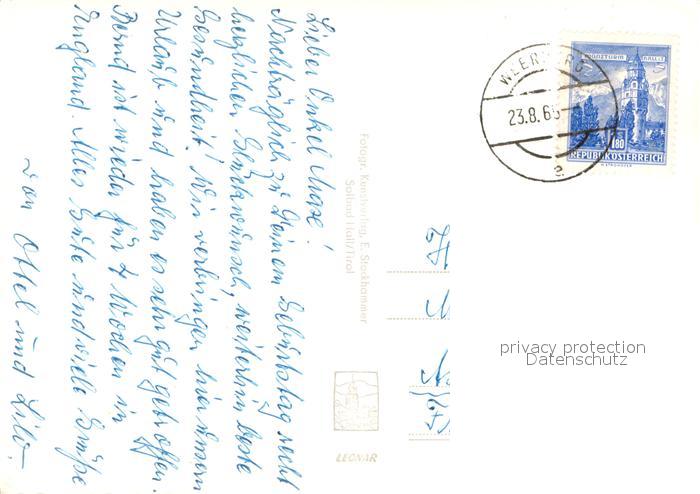 Lieber Onkel Maxe!
Nachträglich zu Deinem Geburtstag recht
herzlichen Glückwunsch, weiterhin beste
Gesundheit! Wir verbringen hier unsern
Urlaub und haben es sehr gut getroffen.
Bernd ist wieder für 4 Wochen in
England. Alles Gute und viele Grüße
von Ottel und Lilo.
Fotogr. Kunstverlag, E. Stockhammer
Solbad Hall/Tirol
LEONAR
WEERBERG
23.8.6
e
MÜNZTURM HALL I. T.
S 1.80
REPUBLIK ÖSTERREICH
privacy protection
Datenschutz